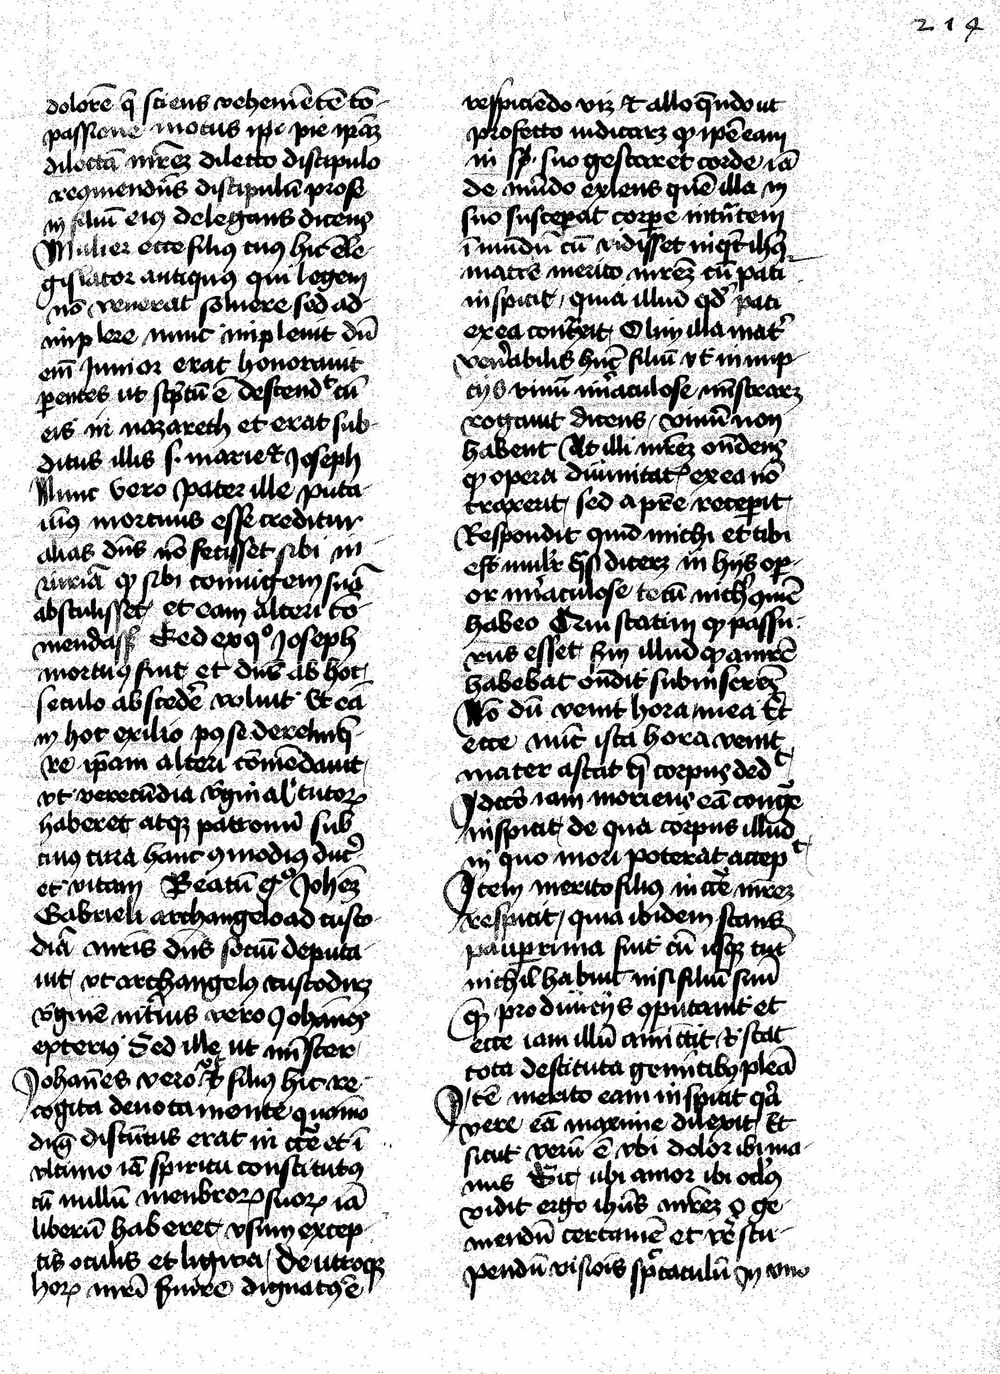 214
dolorē q̄ sciens vehemētē cō-
passione motus ipē pie ipām
dilectā mrēz dilecto discipulo
regmendūs discipulū prose
in filiū eius delegans dicens
Mulier ecce filius tuus hic ēle-
gislator antiquus qui legem
nō venerat soluere sed ad-
implere nunc impleuit dū
em̄ Junior erat honorauit
parentes ut scptū ē descendt cū
eis in nazareth et erat sub-
ditus illis s. marie et Joseph
Nunc vero pater ille puta-
tiuus mortuus esse creditur
alias dn̄s nō fecisset sibi in-
iuriā q sibi coniugem suā
abstulisset et eam alteri cō-
mendasset Sed ex quo Joseph
mortuus fuit et dn̄s ab hoc
seculo abscedē voluit et eā
in hoc exilio post se derelinq-
re ipsam alteri cōmēdauit
vt verecūdia virginal tutorem
haberet atque patronū sub
cuius cura hanc 9modius duct
et vitam Beatū ergo Johēz
Gabrieli archangelo ad custo-
diā mris dn̄s sociū deputa-
uit vt archangelus custodiret
virginē interius vero Johānes
exterius Sed ille ut mister
Johānes vero et filius hic re-
cogita deuota mente quomō
dn̄s distentus erat in cruce et ī
vltimo iā spiritu constitutus
cū nullū menbrorum suorum iā
liberū haberet vsum excep-
tis oculis et lingwa De utroque
horum mrī seruire dignatus ē
respiciēdo viz et alloquēdo ut
profecto iudicaret q ipē eam
in suo gestaret corde iā
de mūdo exiens quē illa in
suo susceperat corpore intrātem
ī mundū cū vidisset inquit ihūs
matrē merito mrēz cū pati
inspicit quia illud qd pati
ex ea contraxit Olim illa mater
venerabilis hūc filiū vt in nup-
cijs vinū miraculose mīstraret
rogauit dicens vinū non
habent At illi mrēz ondens
q opera diuinitatis ex ea nō
traxerit sed a pre recepit
Respondit quid michi et tibi
est mulier qsi diceret in hijs oper-
or miraculose tecū nich 9mūe
habeo Cui statim q passu-
rus esset sm illud q a mrē
habebat ondit subinferens
Nō dū venit hora mea Et
ecce nūc ista hora venit
mater astat q corpus dedit
Idcirco iam moriens eā congrue
inspicit de qua corpus illud
in quo mori poterat accepit
Item merito filius in cruce mrēz
respicit quia ibidem stans
pauperrima fuit cū usque tūc
nichil habuit nisi filiū suū
quem pro diuicijs 9putauit et
ecce iam illū amittit et stat
tota destituta gemitibus plena
Itē merito eam inspicit quia
vere eā maxime dilexit Et
sicut verū ē vbi dolor ibi ma-
nus Sic ubi amor ibi oculus
vidit ergo ihūs mrēz o ge-
mendū certamē et vere stu-
pendū visiōis spectaculū In vno